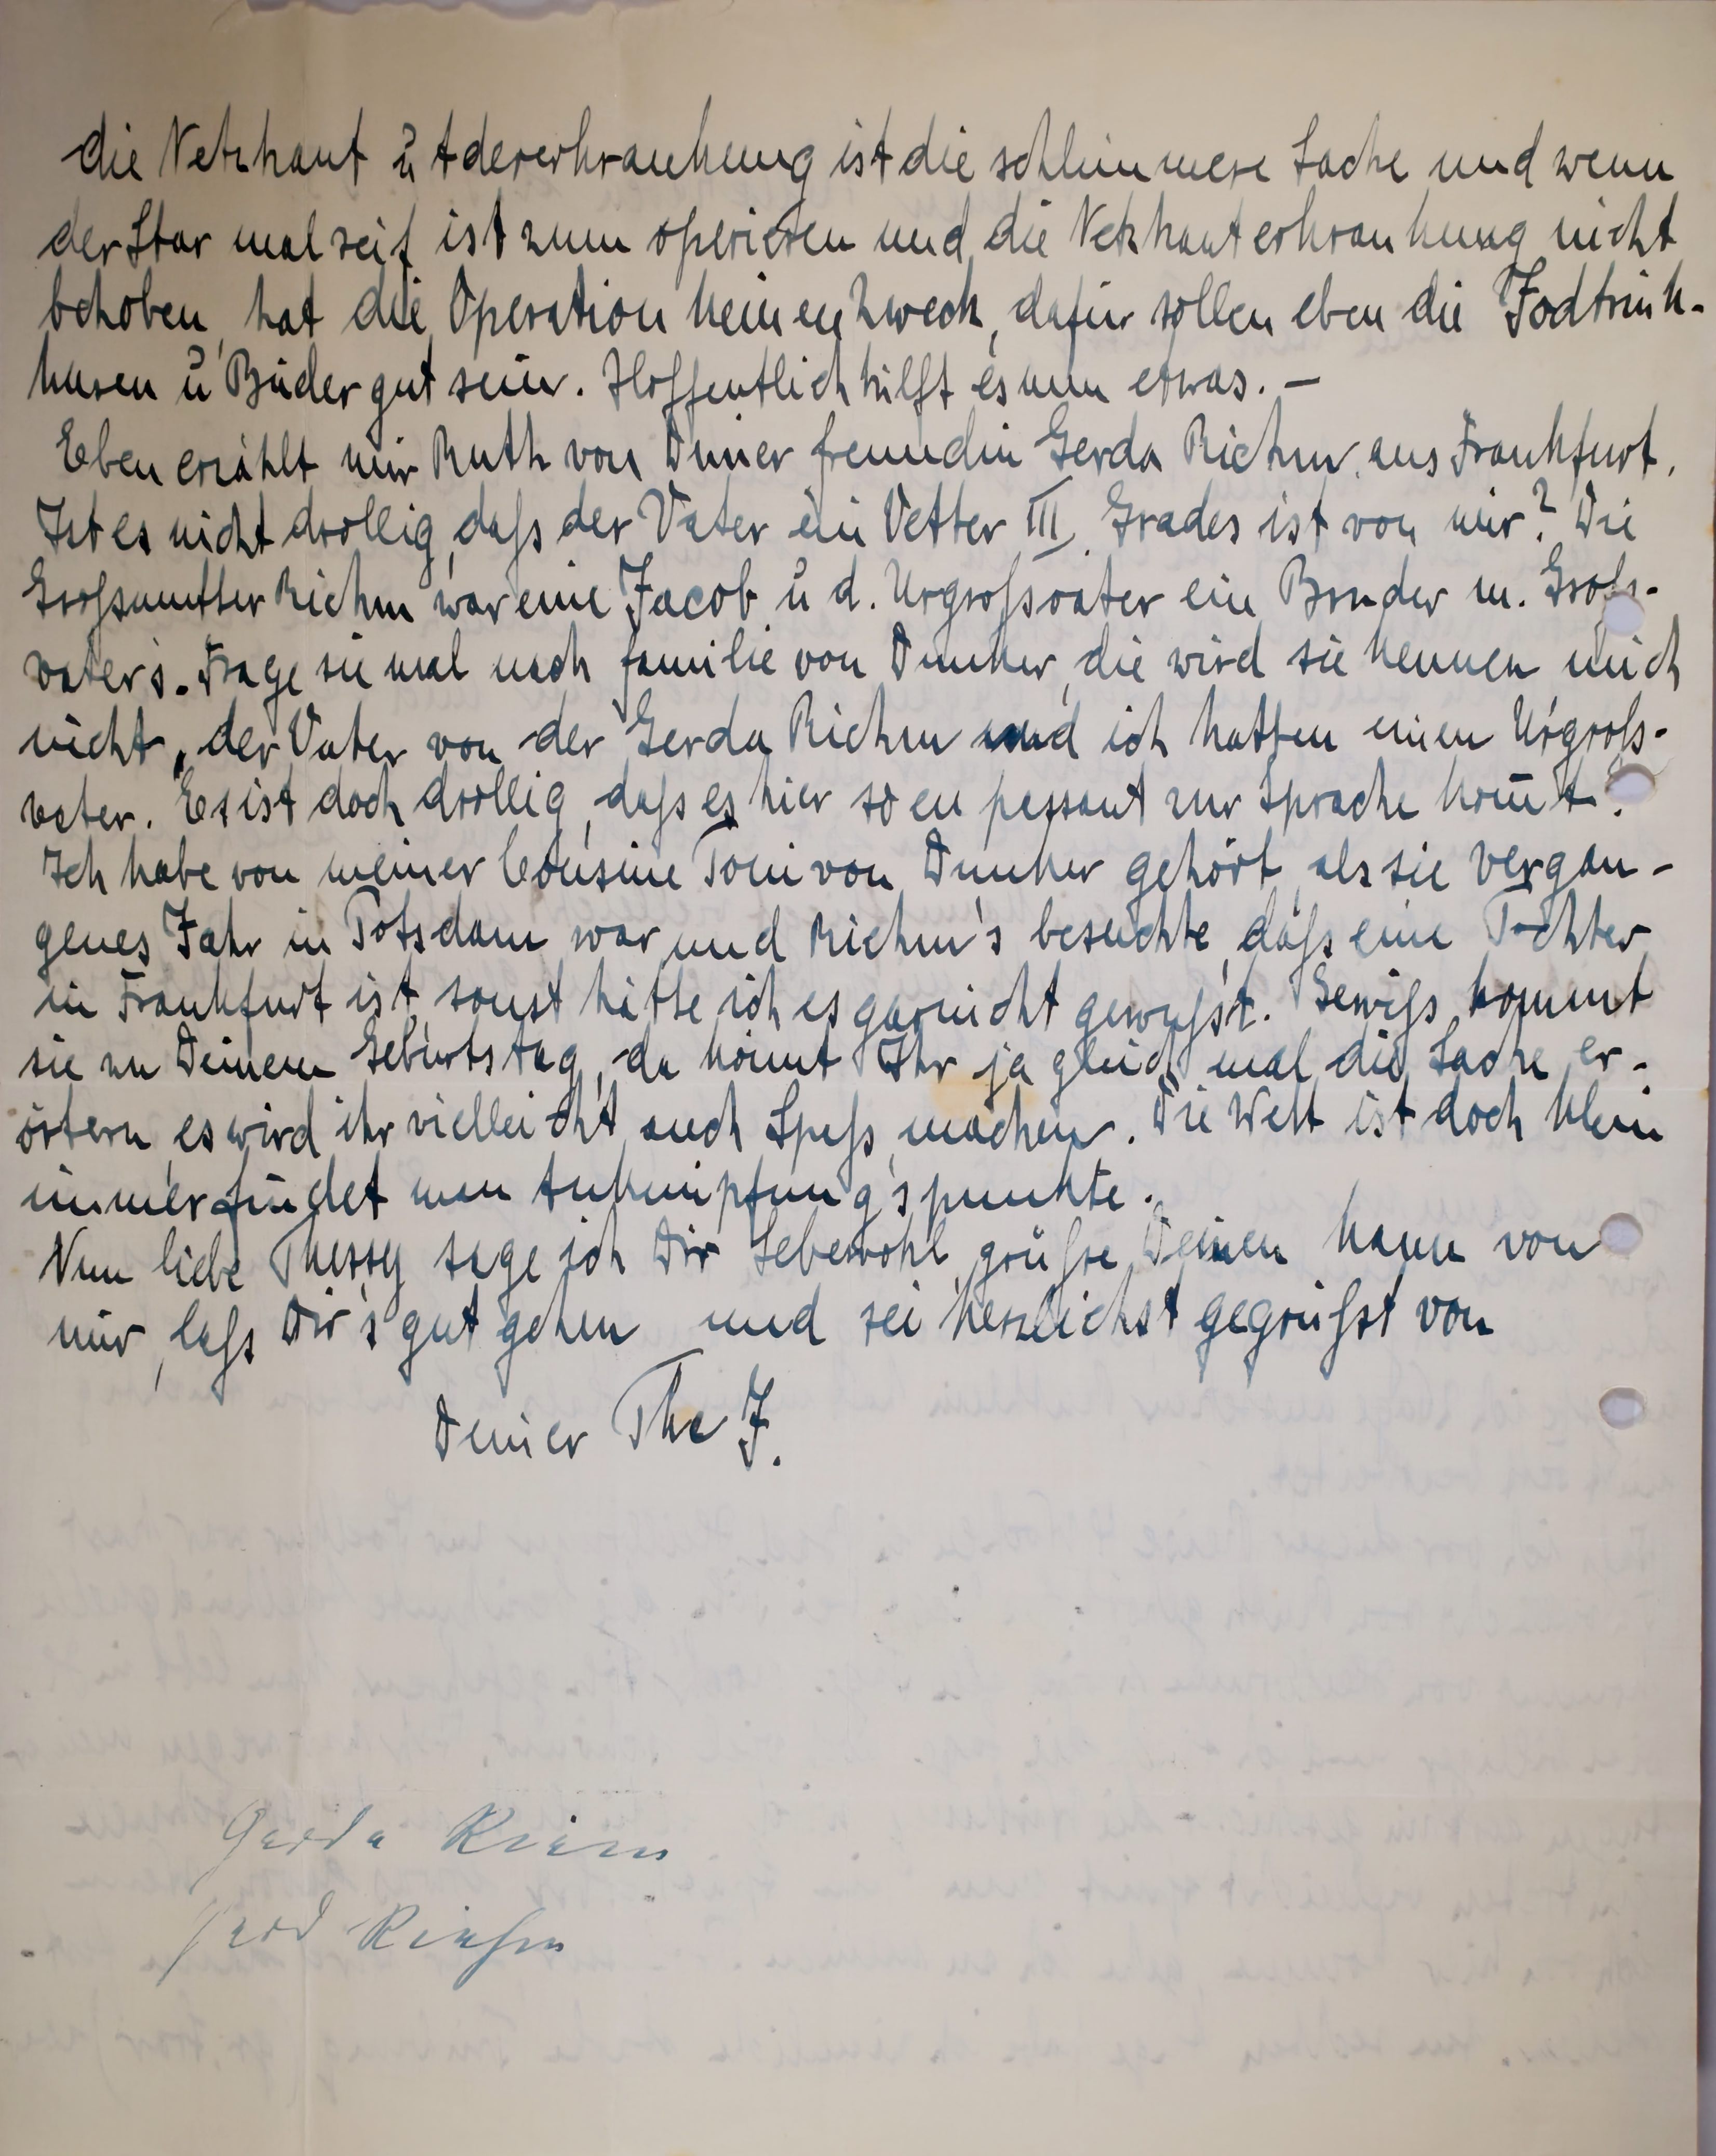 die Netzhaut ü Adererkrankung ist die schlimmere Sache und wenn
der Star mal reif ist zum operieren und die Netzhauterkrankung nicht
behoben, hat die Operation keinen Zweck, dafür sollen eben die Jodtrink-
kuren ü Bäder gut sein. Hoffentlich hilft es nun etwas. –
Eben erzählt mir Ruth von Deiner Freundin Gerda Riehm aus Frankfurt.
Ist es nicht drollig, dass der Vater ein Vetter III. Grades ist von mir? Die
Grossmutter Riehm war eine Jacob ü d. Urgrossvater ein Bruder m. Gross-
vater's. Frage sie mal nach Familie von Dunker, die wird sie kennen mich
nicht, der Vater von der Gerda Riehm und ich hatten einen Urgross-
vater. Es ist doch drollig, dass es hier so en passant zur Sprache kom̅t.
Ich habe von meiner Cousine Toni von Dunker gehört, als sie vergan-
genes Jahr in Potsdam war und Riehm's besuchte, dass eine Tochter
in Frankfurt ist, sonst hätte ich es garnicht gewusst. Gewiss kommt
sie zu Deinem Geburtstag, da könnt Ihr ja gleich mal die Sache er-
örtern, es wird ihr vielleicht auch Spass machen. Die Welt ist doch klein
immer findet man Anknüpfung's punkte.
Nun liebe Thessy sage ich Dir Lebewohl, grüsse Deinen Mann von
mir, lass Dir's gut gehen und sei herzlichst gegrüsst von
Deiner The J.
Gerda Riem
Gerd Riehm